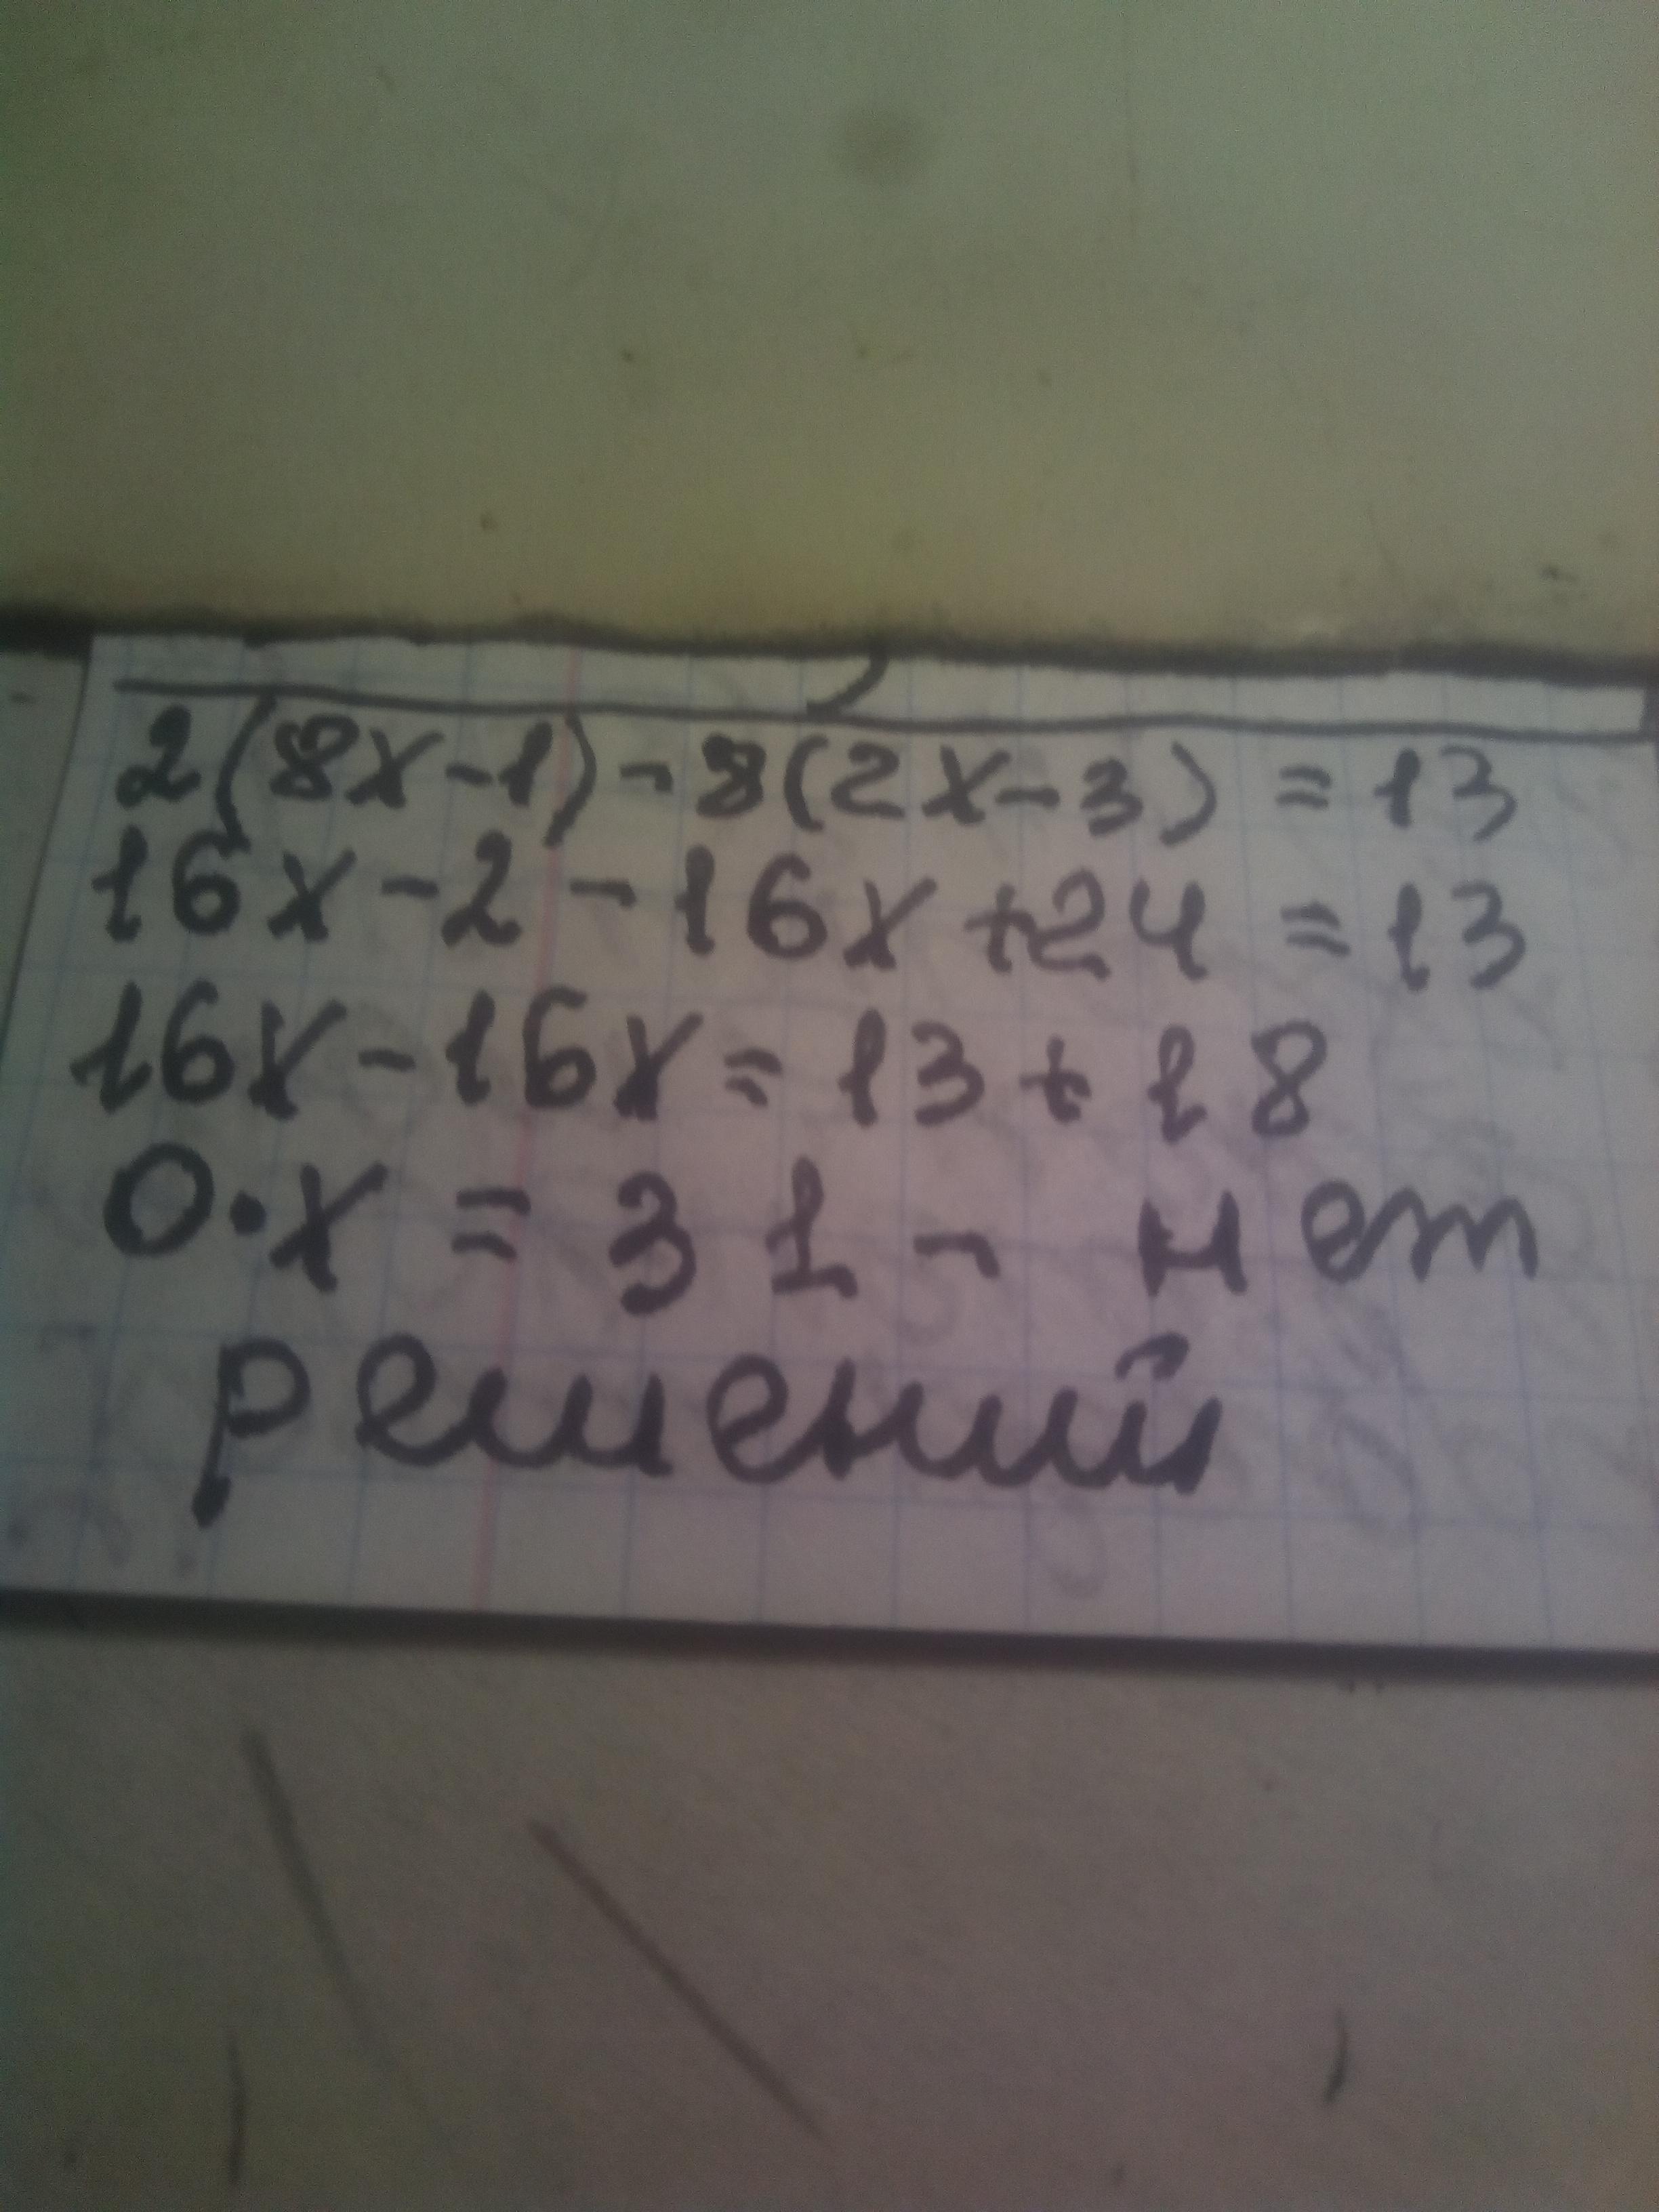 2(8x-1)-8(2x-3)=13
16x-2-16x+24=13
16x-16x=13+18
0·x=31- нет
решений